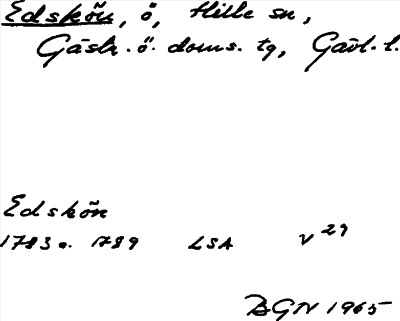 Edskön, ö, Hille sn,
Gästr. ö. doms. tg, Gävl. l.
Edskön
1783 o. 1789 LSA V 29
BGN 1965